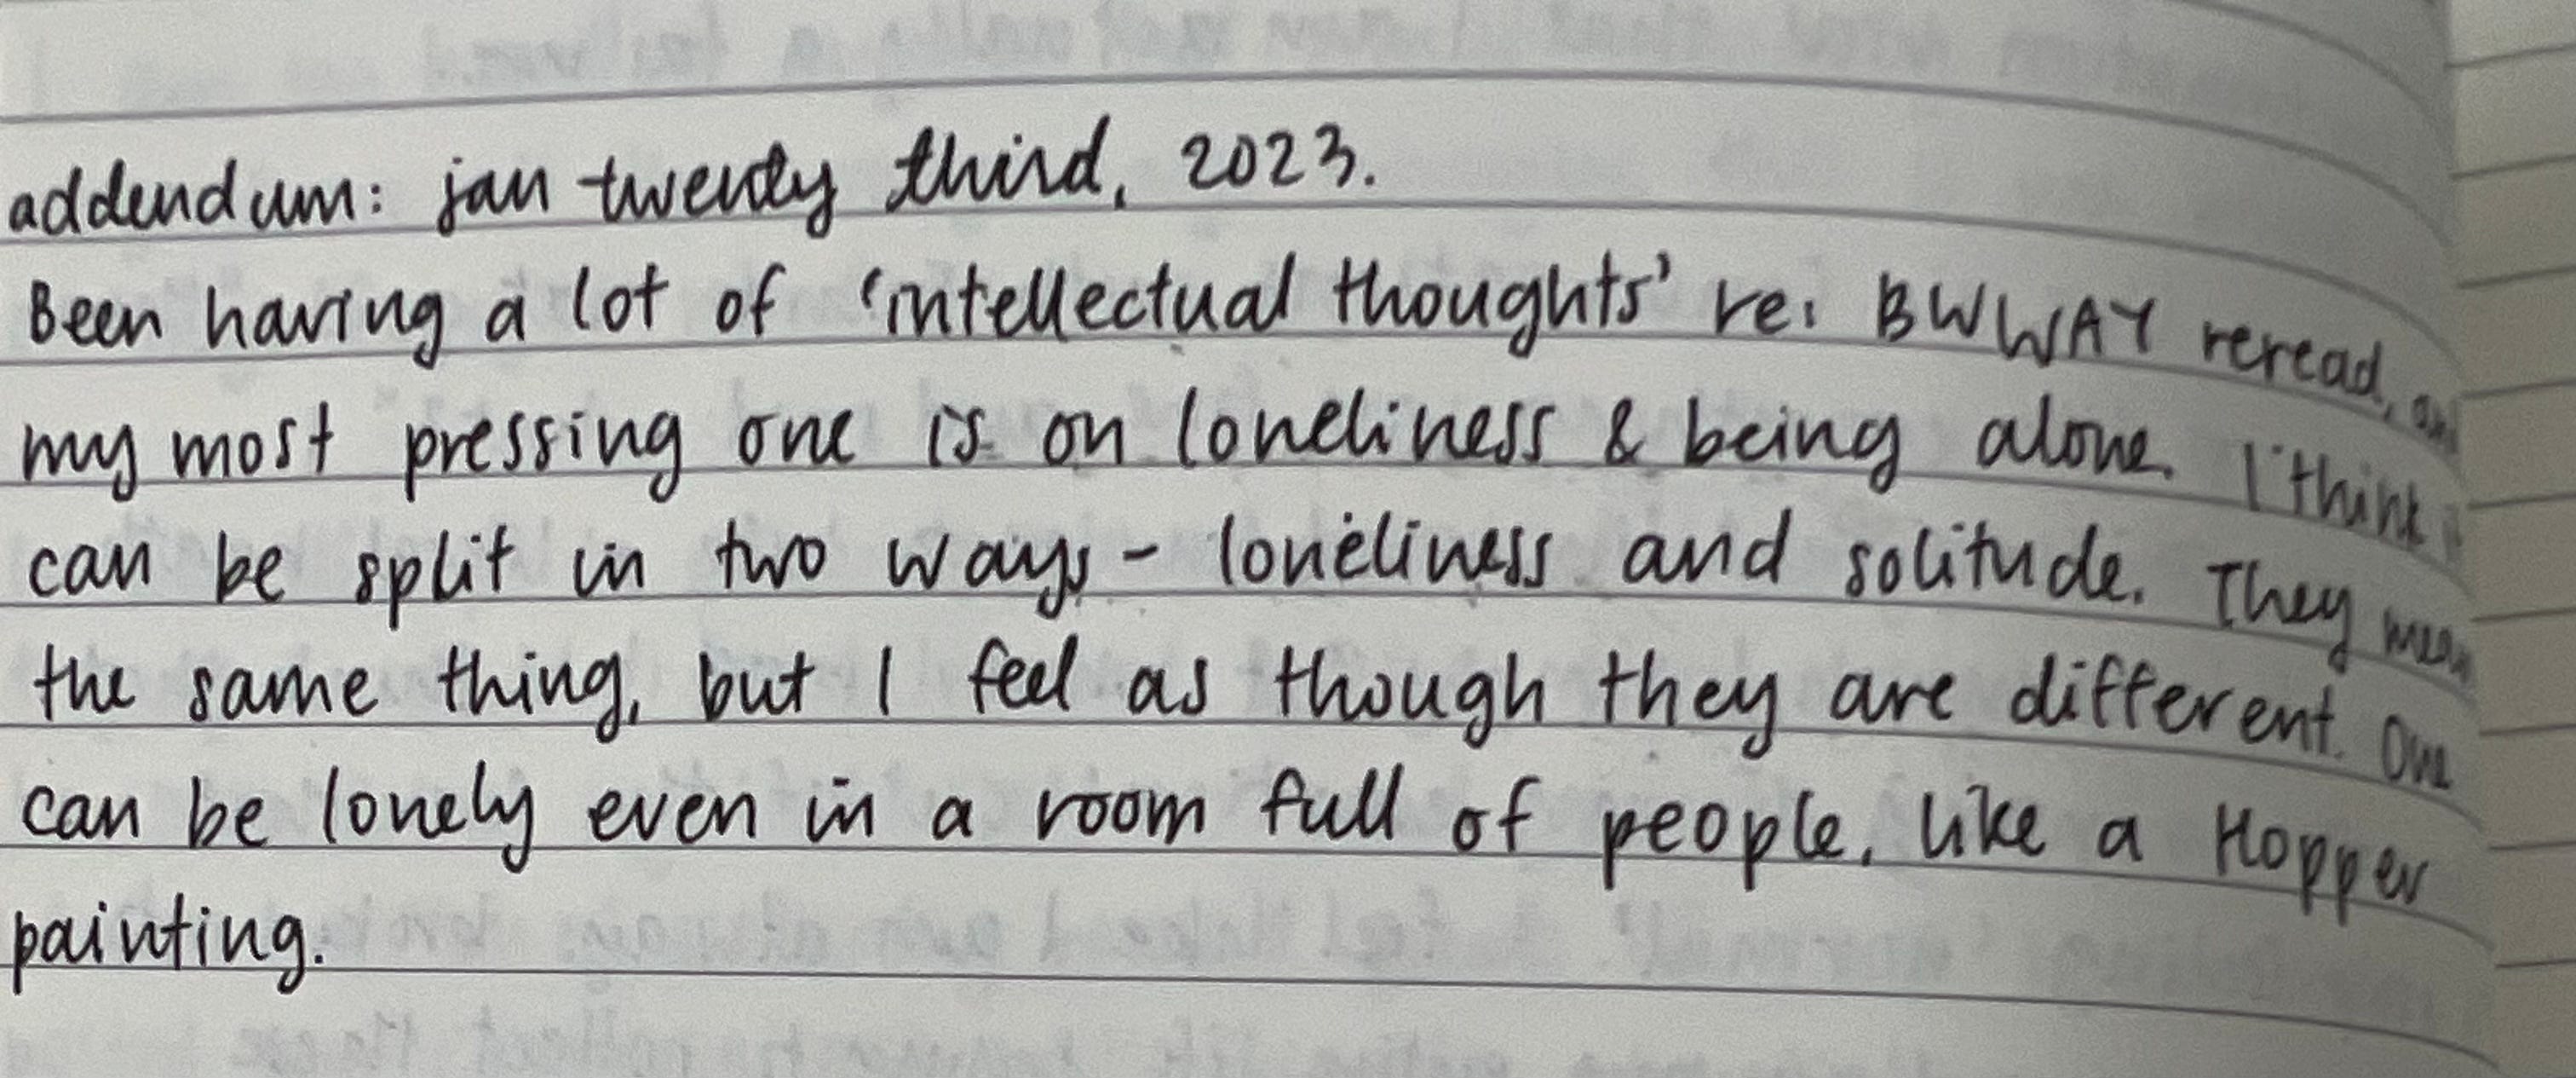 addendum: jan twenty third, 2023.
Been having a lot of 'intellectual thoughts' re: BWWAY reread,
my most pressing one is on loneliness & being alone. I think
can be split in two ways - loneliness and solitude. They mean
the same thing, but I feel as though they are different. One
can be lonely even in a room full of people, like a Hopper
painting.